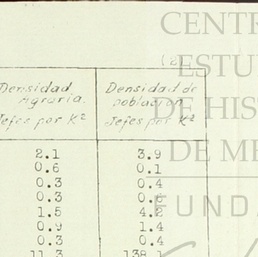 CENTR
(2)
ESTU
Densidad Densidad de
Agraria. poblacion
DE HIS
Jefes por K² Jefes por K²
DE ME
2.1 3.9
0.6 0.1
0.3 0.4
0.3
1.5 4.2
FUND
0.9 1.4
0.3 0.4
11.3 138.1